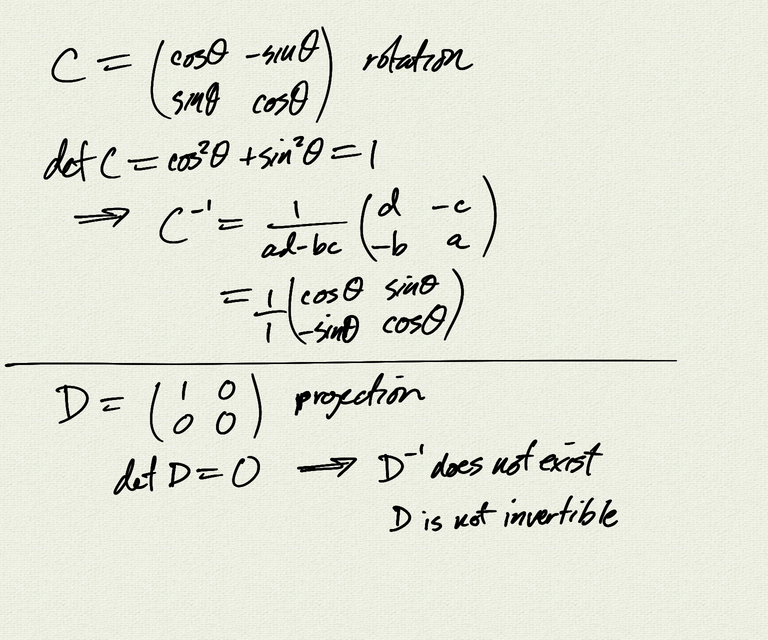 C = (cosθ -sinθ
sinθ cosθ) rotation
det C = cos²θ + sin²θ = 1
⇒ C⁻¹ = 1/(ad-bc) (d -c
-b a)
= 1/1 (cosθ sinθ
-sinθ cosθ)
D = (1 0
0 0) projection
det D = 0 → D⁻¹ does not exist
D is not invertible